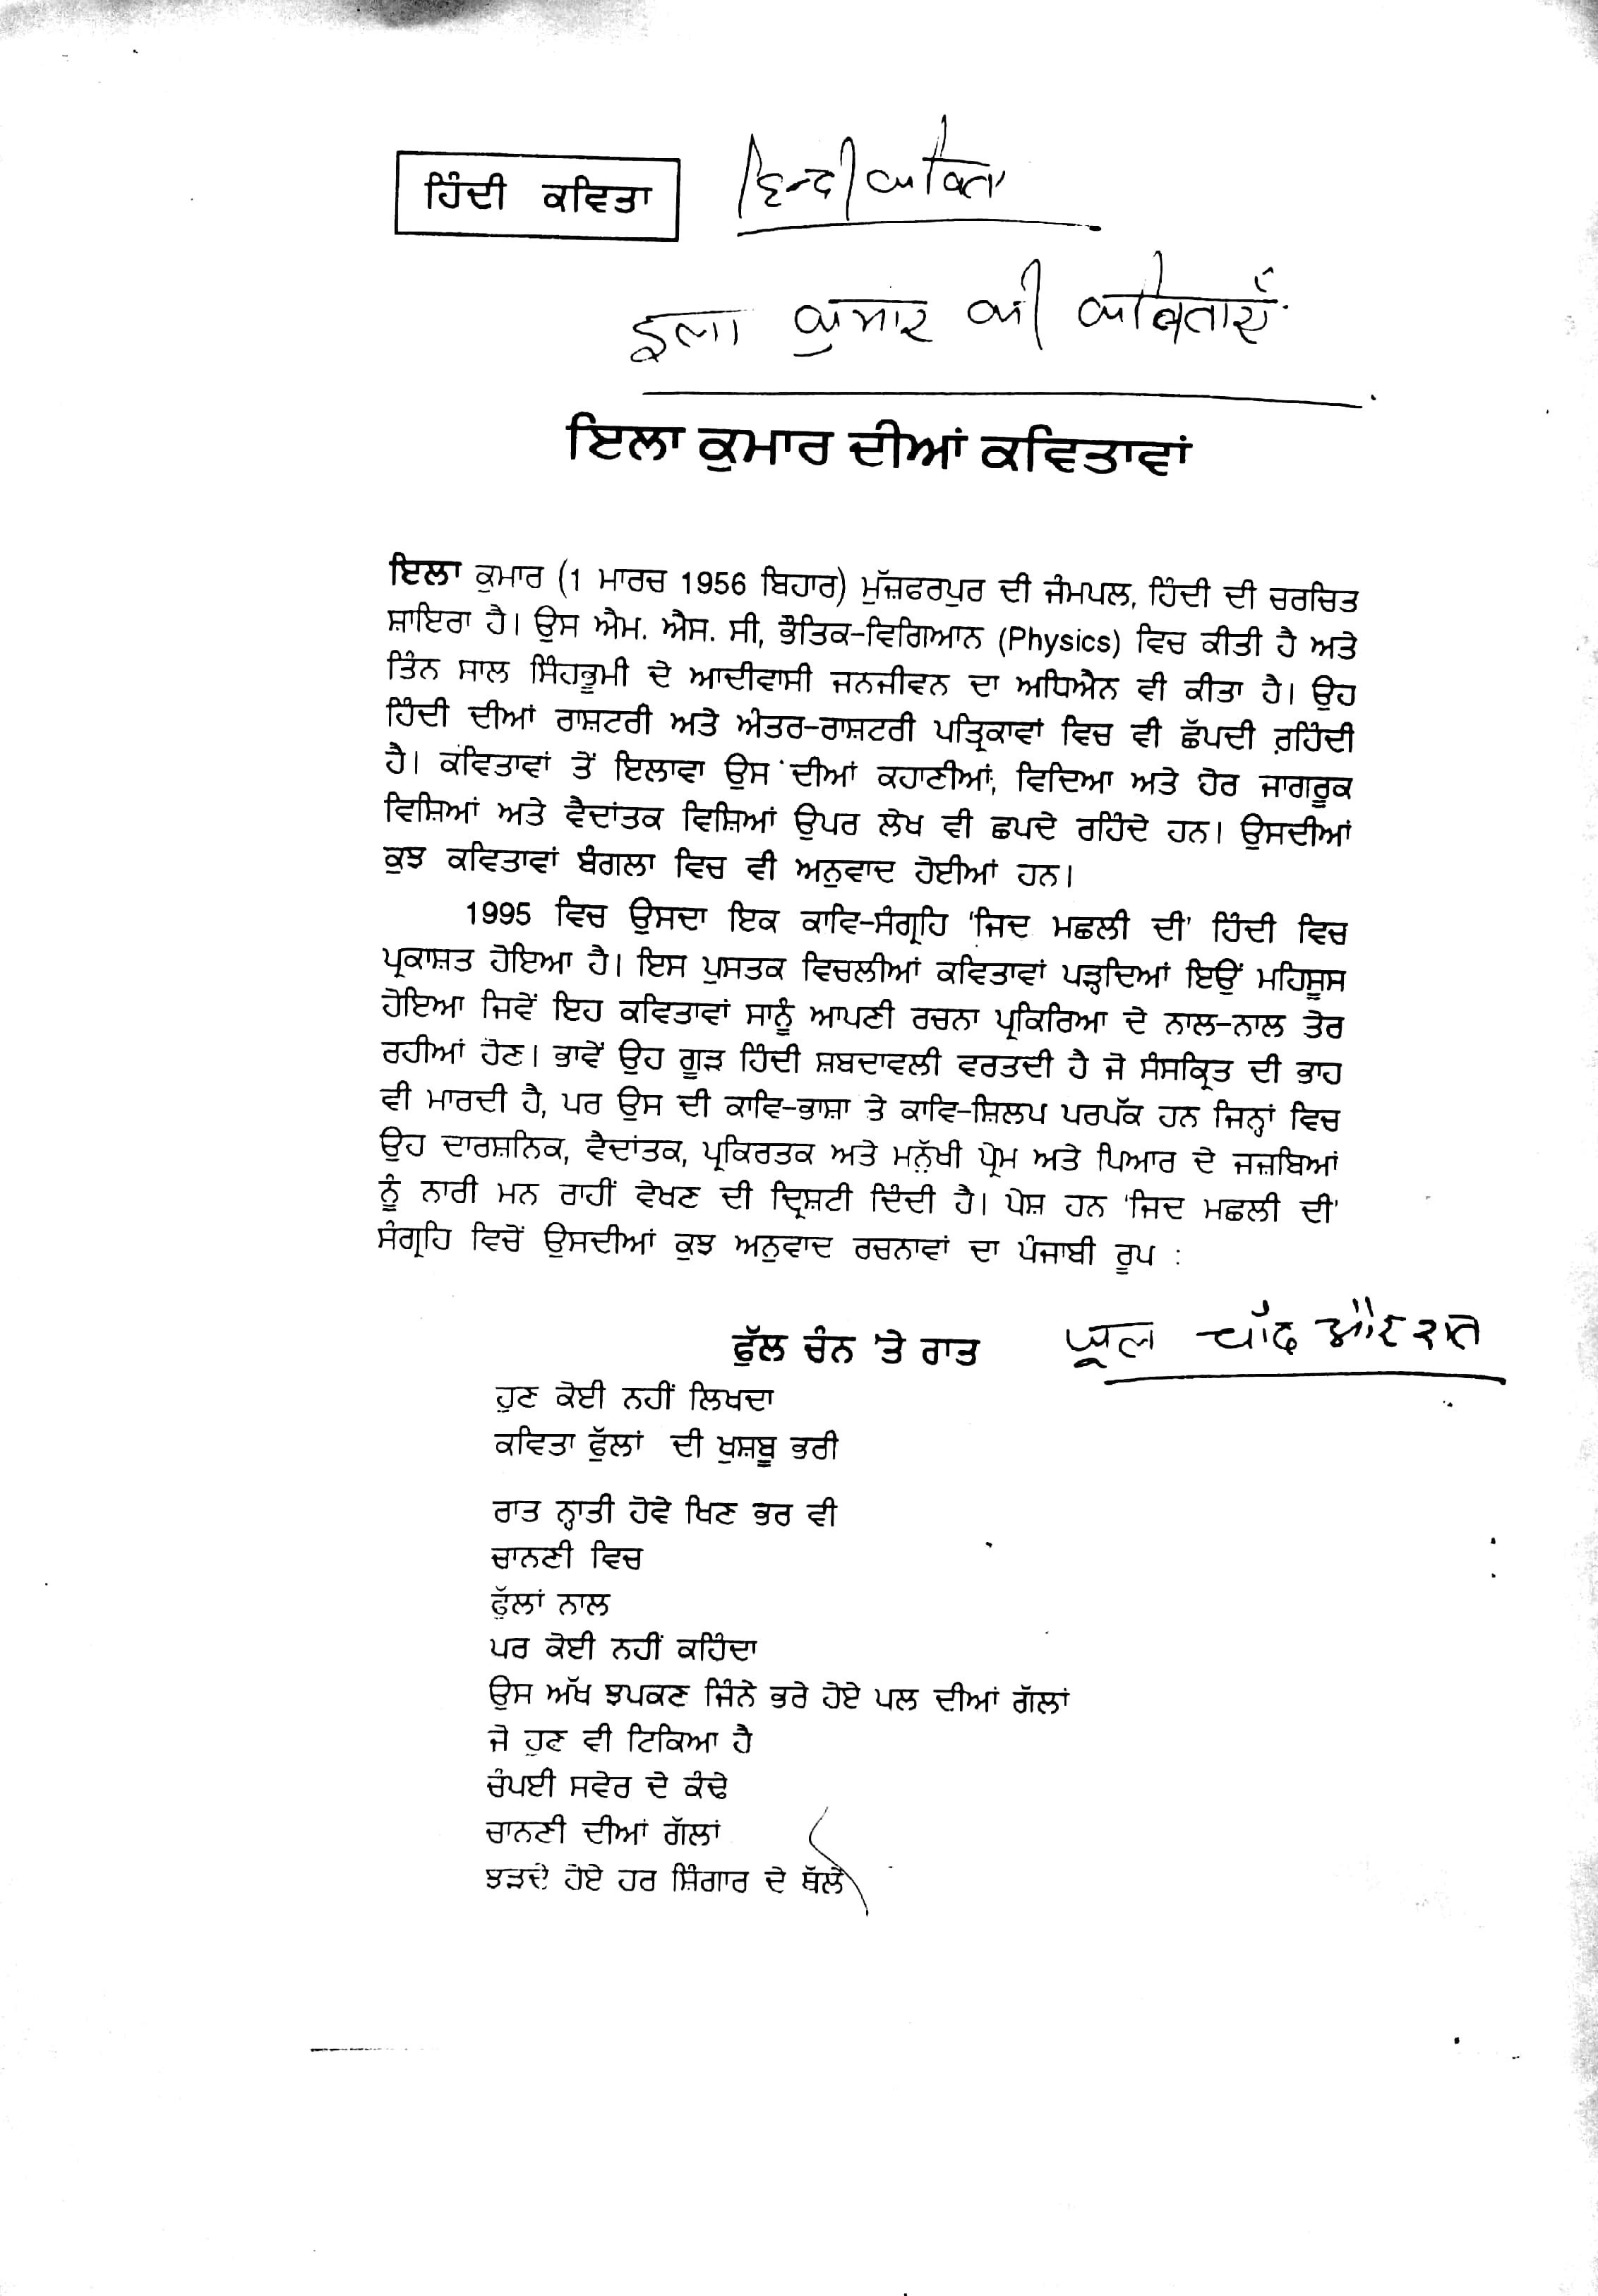 ਹਿੰਦੀ ਕਵਿਤਾ
हिन्दी कविता
इला कुमार की कविताएँ
ਇਲਾ ਕੁਮਾਰ ਦੀਆਂ ਕਵਿਤਾਵਾਂ
ਇਲਾ ਕੁਮਾਰ (1 ਮਾਰਚ 1956 ਬਿਹਾਰ) ਮੁੱਜ਼ਫਰਪੁਰ ਦੀ ਜੰਮਪਲ, ਹਿੰਦੀ ਦੀ ਚਰਚਿਤ
ਸ਼ਾਇਰਾ ਹੈ। ਉਸ ਐਮ. ਐਸ. ਸੀ, ਭੌਤਿਕ-ਵਿਗਿਆਨ (Physics) ਵਿਚ ਕੀਤੀ ਹੈ ਅਤੇ
ਤਿੰਨ ਸਾਲ ਸਿੰਹਭੂਮੀ ਦੇ ਆਦੀਵਾਸੀ ਜਨਜੀਵਨ ਦਾ ਅਧਿਐਨ ਵੀ ਕੀਤਾ ਹੈ। ਉਹ
ਹਿੰਦੀ ਦੀਆਂ ਰਾਸ਼ਟਰੀ ਅਤੇ ਅੰਤਰ-ਰਾਸ਼ਟਰੀ ਪਤ੍ਰਿਕਾਵਾਂ ਵਿਚ ਵੀ ਛੱਪਦੀ ਰਹਿੰਦੀ
ਹੈ। ਕਵਿਤਾਵਾਂ ਤੋਂ ਇਲਾਵਾ ਉਸ ਦੀਆਂ ਕਹਾਣੀਆਂ, ਵਿਦਿਆ ਅਤੇ ਹੋਰ ਜਾਗਰੂਕ
ਵਿਸ਼ਿਆਂ ਅਤੇ ਵੈਦਾਂਤਕ ਵਿਸ਼ਿਆਂ ਉਪਰ ਲੇਖ ਵੀ ਛਪਦੇ ਰਹਿੰਦੇ ਹਨ। ਉਸਦੀਆਂ
ਕੁਝ ਕਵਿਤਾਵਾਂ ਬੰਗਲਾ ਵਿਚ ਵੀ ਅਨੁਵਾਦ ਹੋਈਆਂ ਹਨ।
1995 ਵਿਚ ਉਸਦਾ ਇਕ ਕਾਵਿ-ਸੰਗ੍ਰਹਿ 'ਜਿਦ ਮਛਲੀ ਦੀ' ਹਿੰਦੀ ਵਿਚ
ਪ੍ਰਕਾਸ਼ਤ ਹੋਇਆ ਹੈ। ਇਸ ਪੁਸਤਕ ਵਿਚਲੀਆਂ ਕਵਿਤਾਵਾਂ ਪੜ੍ਹਦਿਆਂ ਇਉਂ ਮਹਿਸੂਸ
ਹੋਇਆ ਜਿਵੇਂ ਇਹ ਕਵਿਤਾਵਾਂ ਸਾਨੂੰ ਆਪਣੀ ਰਚਨਾ ਪ੍ਰਕਿਰਿਆ ਦੇ ਨਾਲ-ਨਾਲ ਤੋਰ
ਰਹੀਆਂ ਹੋਣ। ਭਾਵੇਂ ਉਹ ਗੂੜ ਹਿੰਦੀ ਸ਼ਬਦਾਵਲੀ ਵਰਤਦੀ ਹੈ ਜੋ ਸੰਸਕ੍ਰਿਤ ਦੀ ਭਾਹ
ਵੀ ਮਾਰਦੀ ਹੈ, ਪਰ ਉਸ ਦੀ ਕਾਵਿ-ਭਾਸ਼ਾ ਤੇ ਕਾਵਿ-ਸ਼ਿਲਪ ਪਰਪੱਕ ਹਨ ਜਿਨ੍ਹਾਂ ਵਿਚ
ਉਹ ਦਾਰਸ਼ਨਿਕ, ਵੈਦਾਂਤਕ, ਪ੍ਰਕਿਰਤਕ ਅਤੇ ਮਨੁੱਖੀ ਪ੍ਰੇਮ ਅਤੇ ਪਿਆਰ ਦੇ ਜਜ਼ਬਿਆਂ
ਨੂੰ ਨਾਰੀ ਮਨ ਰਾਹੀਂ ਵੇਖਣ ਦੀ ਦ੍ਰਿਸ਼ਟੀ ਦਿੰਦੀ ਹੈ। ਪੇਸ਼ ਹਨ 'ਜਿਦ ਮਛਲੀ ਦੀ'
ਸੰਗ੍ਰਹਿ ਵਿਚੋਂ ਉਸਦੀਆਂ ਕੁਝ ਅਨੁਵਾਦ ਰਚਨਾਵਾਂ ਦਾ ਪੰਜਾਬੀ ਰੂਪ :
ਫੁੱਲ ਚੰਨ 'ਤੇ ਰਾਤ फूल चाँद और रात
ਹੁਣ ਕੋਈ ਨਹੀਂ ਲਿਖਦਾ
ਕਵਿਤਾ ਫੁੱਲਾਂ ਦੀ ਖੁਸ਼ਬੂ ਭਰੀ
ਰਾਤ ਨ੍ਹਾਤੀ ਹੋਵੇ ਖਿਣ ਭਰ ਵੀ
ਚਾਨਣੀ ਵਿਚ
ਫੁੱਲਾਂ ਨਾਲ
ਪਰ ਕੋਈ ਨਹੀਂ ਕਹਿੰਦਾ
ਉਸ ਅੱਖ ਝਪਕਣ ਜਿੰਨੇ ਭਰੇ ਹੋਏ ਪਲ ਦੀਆਂ ਗੱਲਾਂ
ਜੋ ਹੁਣ ਵੀ ਟਿਕਿਆ ਹੈ
ਚੰਪਈ ਸਵੇਰ ਦੇ ਕੰਢੇ
ਚਾਨਣੀ ਦੀਆਂ ਗੱਲਾਂ
ਝੜਦੇ ਹੋਏ ਹਰ ਸ਼ਿੰਗਾਰ ਦੇ ਥੱਲੇ